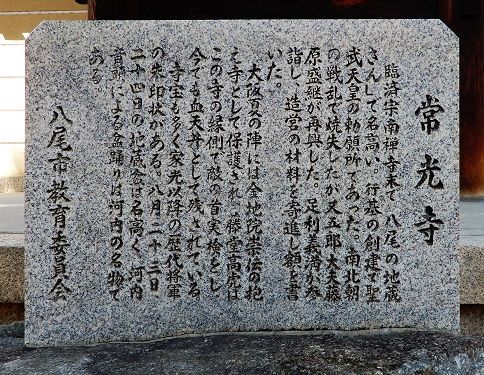 常光寺
臨済宗南禅寺末で、八尾の地蔵
さんとして名高い。行基の創建で聖
武天皇の勅願所であった。南北朝
の戦乱で焼失したが又五郎大夫藤
原盛継が再興した。足利義満が参
詣し、造営の材料を寄進し額を書
いた。
大阪夏の陣には金地院崇伝の抱
え寺として保護され、藤堂高虎は
この寺の縁側で敵の首実検をし、
今でも血天井として残されている
寺宝も多く家光以降の歴代将軍
の朱印状がある。八月二十三日
二十四日の地蔵盆は名高く、河内
音頭による盆踊りは河内の名物で
ある
八尾市教育委員会